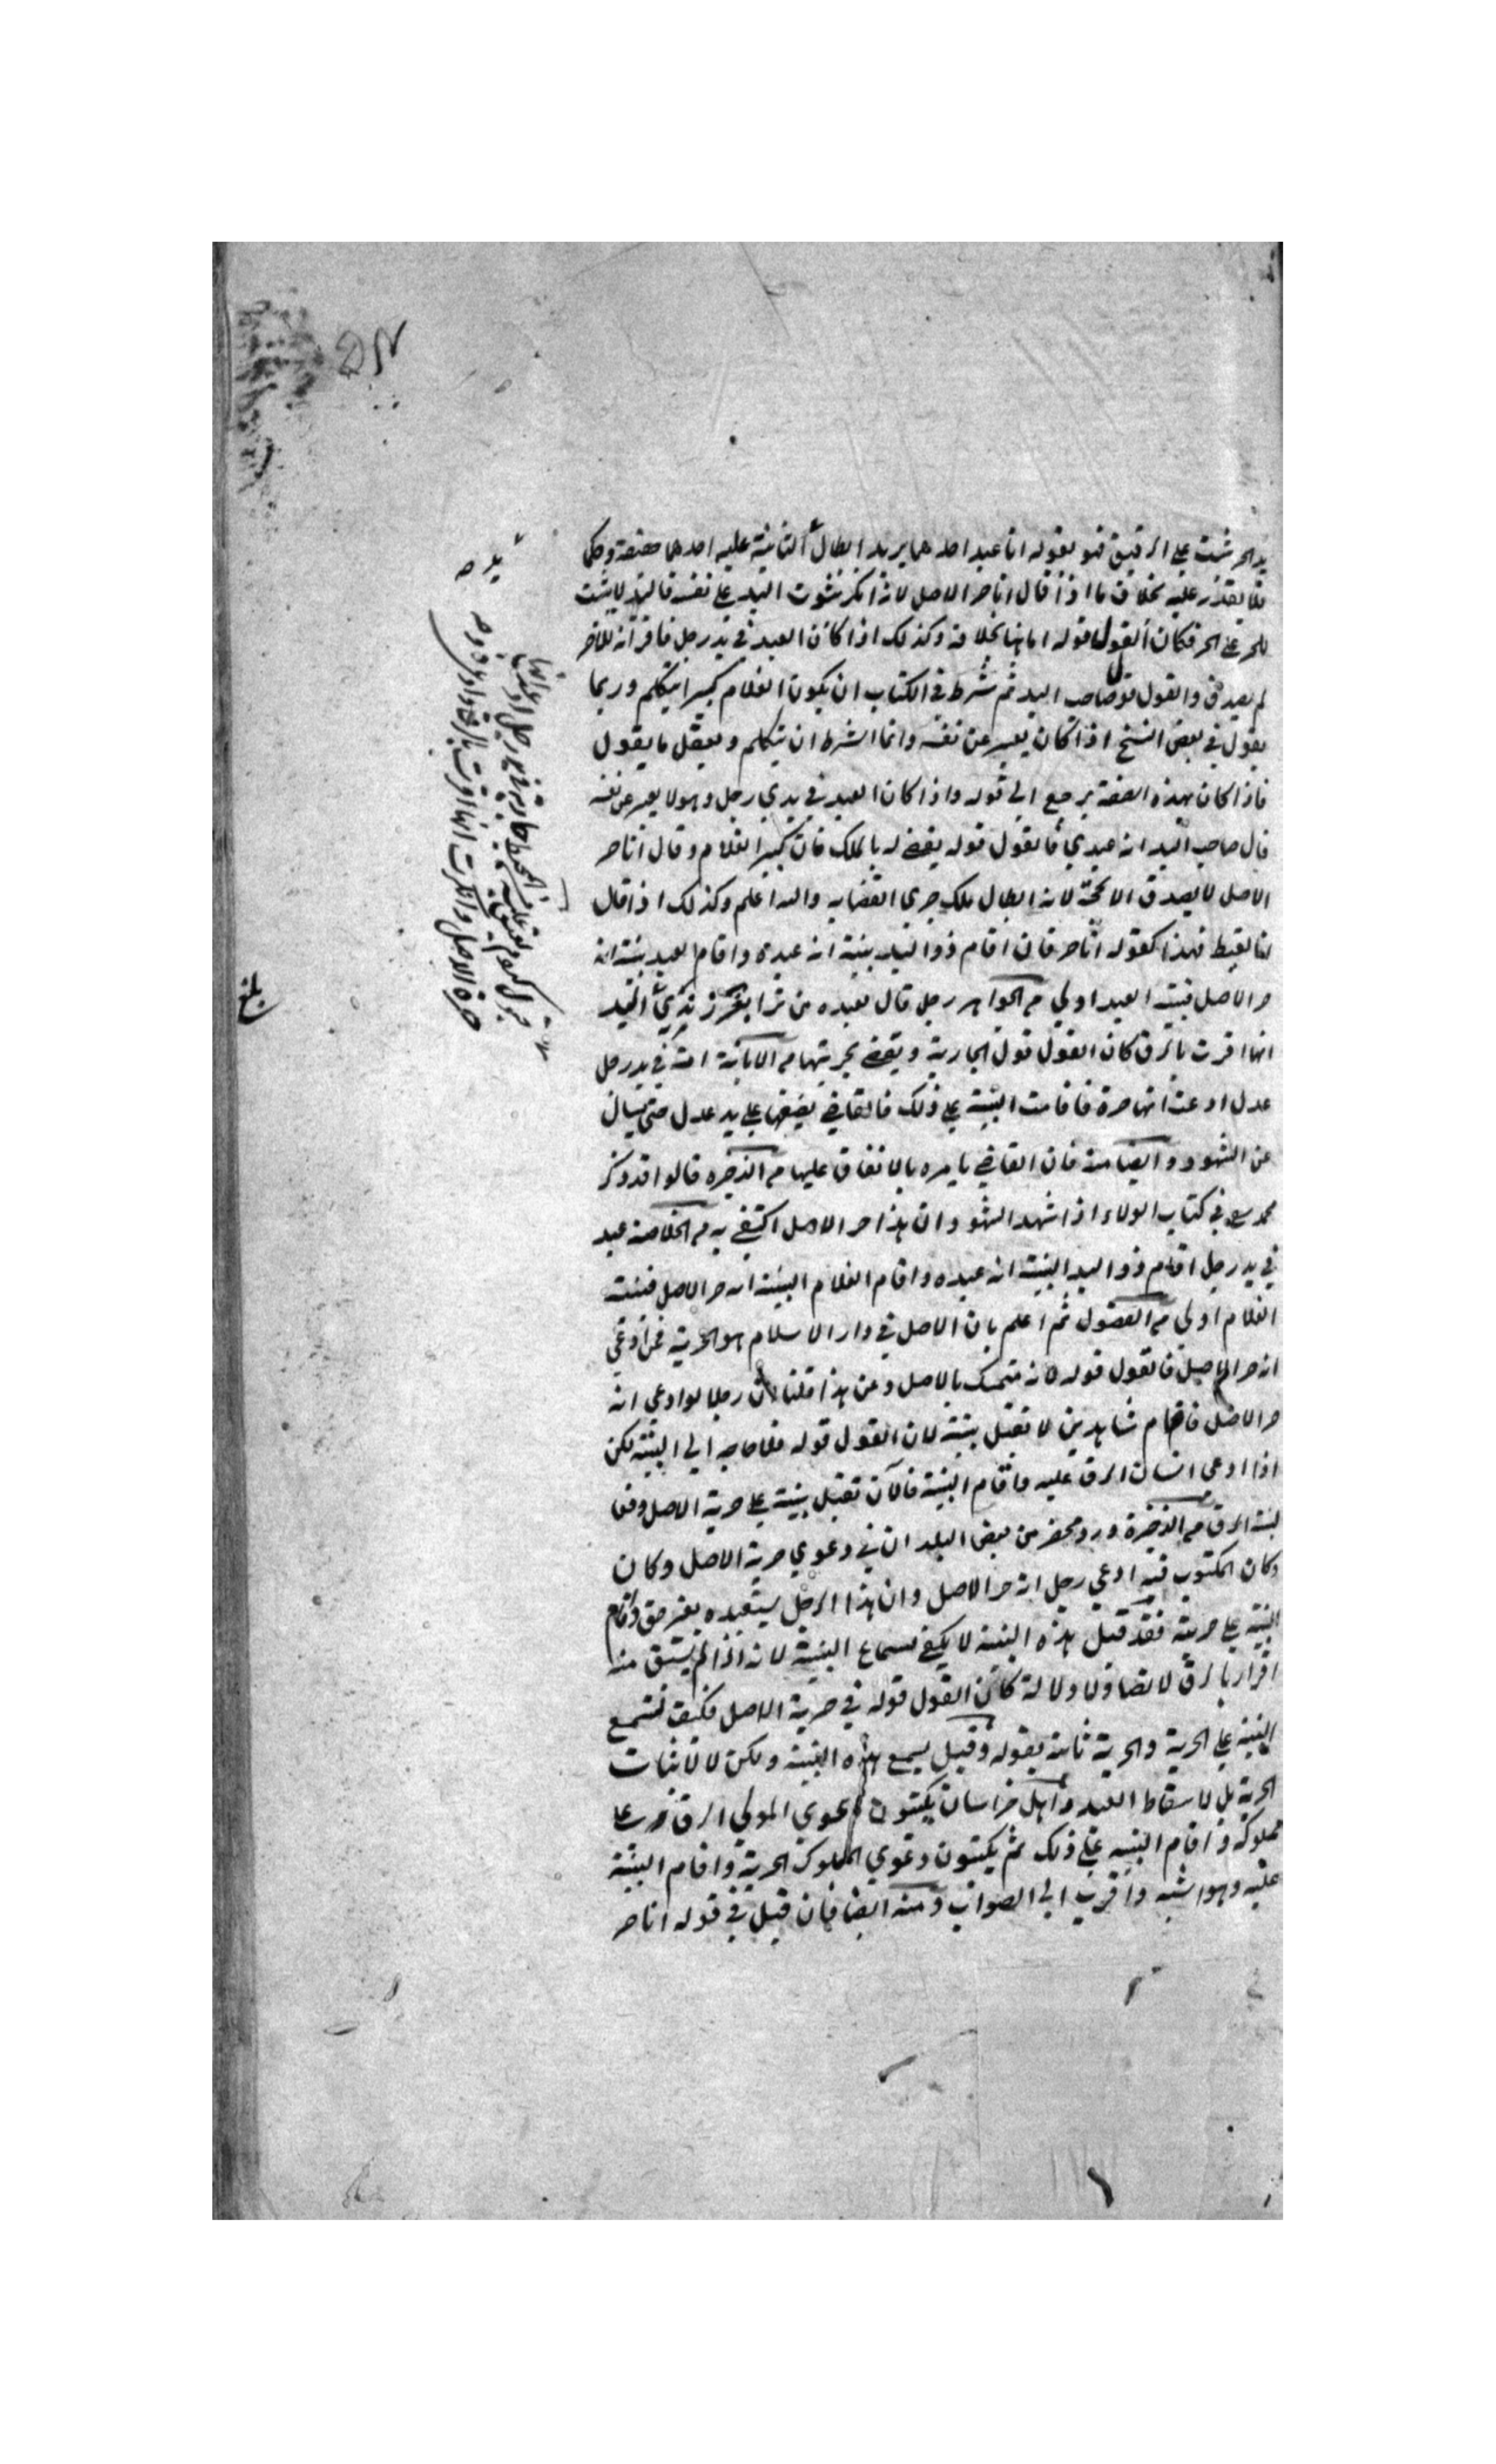 يد الحر تثبت على الرقيق فهو بقوله انا عبد احدهما يريد ابطال اليد الثابتة عليه احدهما حقيقة وحكما
فلا يقدر عليه بخلاف ما اذا قال انا حر الاصل لانه انكر ثبوت اليد على نفسه فاليد لا يثبت
للحر على الحر فكان القول قوله اما هنا بخلافه وكذلك اذا كان العبد في يد رجل فاقر انه للاخر
لم يصدق والقول قول صاحب اليد ثم شرط في الكتاب ان يكون الغلام كبيرا يتكلم وربما
يقول في بعض النسخ اذا كان يعبر عن نفسه وانما الشرط ان يتكلم ويعقل ما يقول
فاذا كان بهذه الصفة يرجع الى قوله واذا كان العبد في يدي رجل وهو لا يعبر عن نفسه
قال صاحب اليد انه عبدي فالقول قوله يقضى له بالملك فان كبر الغلام وقال انا حر
الاصل لا يصدق الا بحجة لانه ابطال ملك جرى القضا به والله اعلم وكذلك اذا قال
انا لقيط فهذا كقوله انا حر فان اقام ذو اليد بينة انه عبده واقام العبد بينة انه
حر الاصل فبينة العبد اولى من الجواهر رجل قال لعبده
انها اقرت بالرق كان القول قول الجارية ويقضى بحريتها من امة في يد رجل
عدل ادعت انها حرة فاقامت البينة على ذلك فالقاضي يضعها على يد عدل حتى يسال
عن الشهود وايضا منه فان القاضي يامره بالانفاق عليها من الذخيره قالوا قد ذكر
محمد في كتاب الولاء اذا شهد الشهود ان هذا حر الاصل اكتفي به من الخلاصة عبد
في يد رجل اقام ذو اليد البينة انه عبده واقام الغلام البينة انه حر الاصل فبينة
الغلام اولى من الفصول ثم اعلم بان الاصل في دار الاسلام هو الحرية فمن ادعى
انه حر الاصل فالقول قوله لانه متمسك بالاصل وعن هذا قلنا ان رجلا لو ادعى انه
حر الاصل فاقام شاهدين لا تقبل بينته لان القول قوله فلا حاجة الى البينة لكن
اذا ادعى انسان الرق عليه واقام البينة فالآن تقبل بينته على حرية الاصل دفعا
لبينة الرق من الذخيرة ورد محضر من بعض البلدان في دعوى حرية الاصل وكان
وكان المكتوب فيه ادعى رجل انه حر الاصل وان هذا الرجل يستعبده بغير حق واقام
البينة على حريته فقد قيل هذه البينة لا يكفي لسماع البينة لانه اذا لم يسبق منه
اقرار بالرق لا نصا ولا دلالة كان القول قوله في حرية الاصل فكيف تسمع
البينة على الحرية والحرية ثابتة بقوله وقيل يسمع هذه البينة ولكن لا لاثبات
الحرية بل لاسقاط اليد واهل خراسان يكتبون دعوى المولى الرق على
مملوكه واقام البينة على ذلك ثم يكتبون دعوى المملوك الحرية واقام البينة
عليه وهو اشبه واقرب الى الصواب ومنه ايضا فان قيل في قوله انا حر
حرة الاصل وانكرت انها اقرت بالرق
بلغ